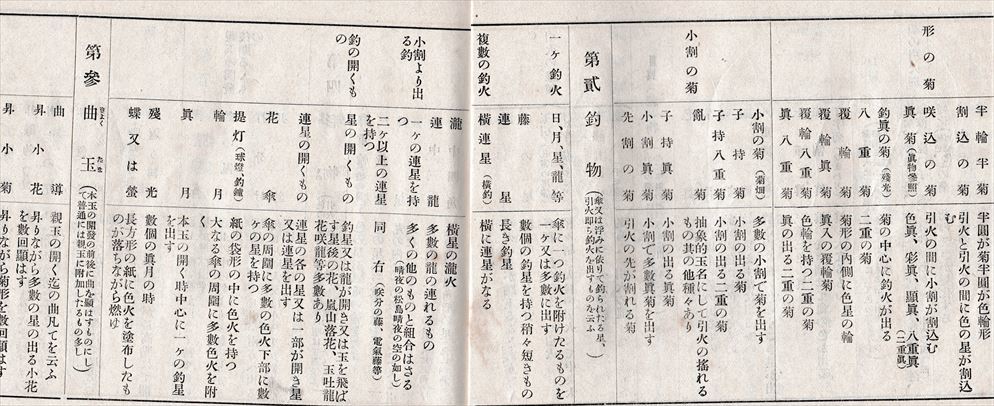 形の菊
半輪の菊 半圓が菊半圓が色輪形
割込の菊 引火と引火の間に色の星が割込む
咲込の菊 引火の間に小割が割込む
眞菊（眞物參照） 色眞、彩眞、顯眞、八重眞（二重眞）
釣眞の菊（殘光） 菊の中心に釣火が出る
八重菊 二重の菊
覆輪 菊形の内側に色星の輪
覆輪眞菊 色輪入の覆輪菊
覆輪八重菊 色輪を持つ二重の菊
眞八重菊 眞の出る二重の菊
小割の菊
小割の菊（菊畑） 多數の小割で菊を出す
子持菊 小割の出る菊
子持八重菊 小割の出る二重の菊
亂菊 抽象的玉名にして引火の搖れるもの其の他種々あり
子持眞菊 小割の出る眞菊
小割眞菊 小割で多數眞菊を出す
先割の菊 引火の先が割れる菊
第貳 釣物（傘又は浮みに依りて釣られたる星、引火即ち釣火を出すものを云ふ
一ケ釣火
日、月、星、龍等 傘につの釣火を附けたるものを一ケ又は多數に出す
複數の釣火
藤 數個の釣星を持つ稍々短きもの
連星 長き釣星
橫連星（橫釣） 橫に連星がかなる
瀧 橫星の瀧火
連龍 多數の龍の連れるもの
小割より出る釣
一ケの連星を持つ 多くの他のものと組合はさる（晴夜の松島晴夜の空の如し）
二ケ以上の連星を持つ 同右（咲分の藤、電氣藤等）
釣の開くもの
星の開くもの 釣星又は龍が開き又は玉を飛ばす星後の花、嵐山落花、玉吐龍花咲龍等多數あり
連星の開くもの 連星の各の星又は一部が開き星又は連星を出す
花傘 傘の周圍に多數の色火下部に數ケの星を持つ
提灯（球燈、釣鐘） 紙の袋形の中に色火を持つ
輪月 大なる傘の周圍に多數色火を附く
眞月 本玉の開く時中心に一ケの釣星を出す
殘光 數個の眞月の時
蝶又は螢 長方形の紙に色火を塗布したものが落ちながら燃ゆ
第參 曲玉（本玉の開發の前後に曲を顯はすものにして普通には親玉に附加したるもの多し）
きよくたま
曲導 親玉の開く迄の曲凡てを云ふ
昇小花 昇りながら多數の星の出る小花を數回顯はす
昇小菊 昇りながら菊形を數回顯はす